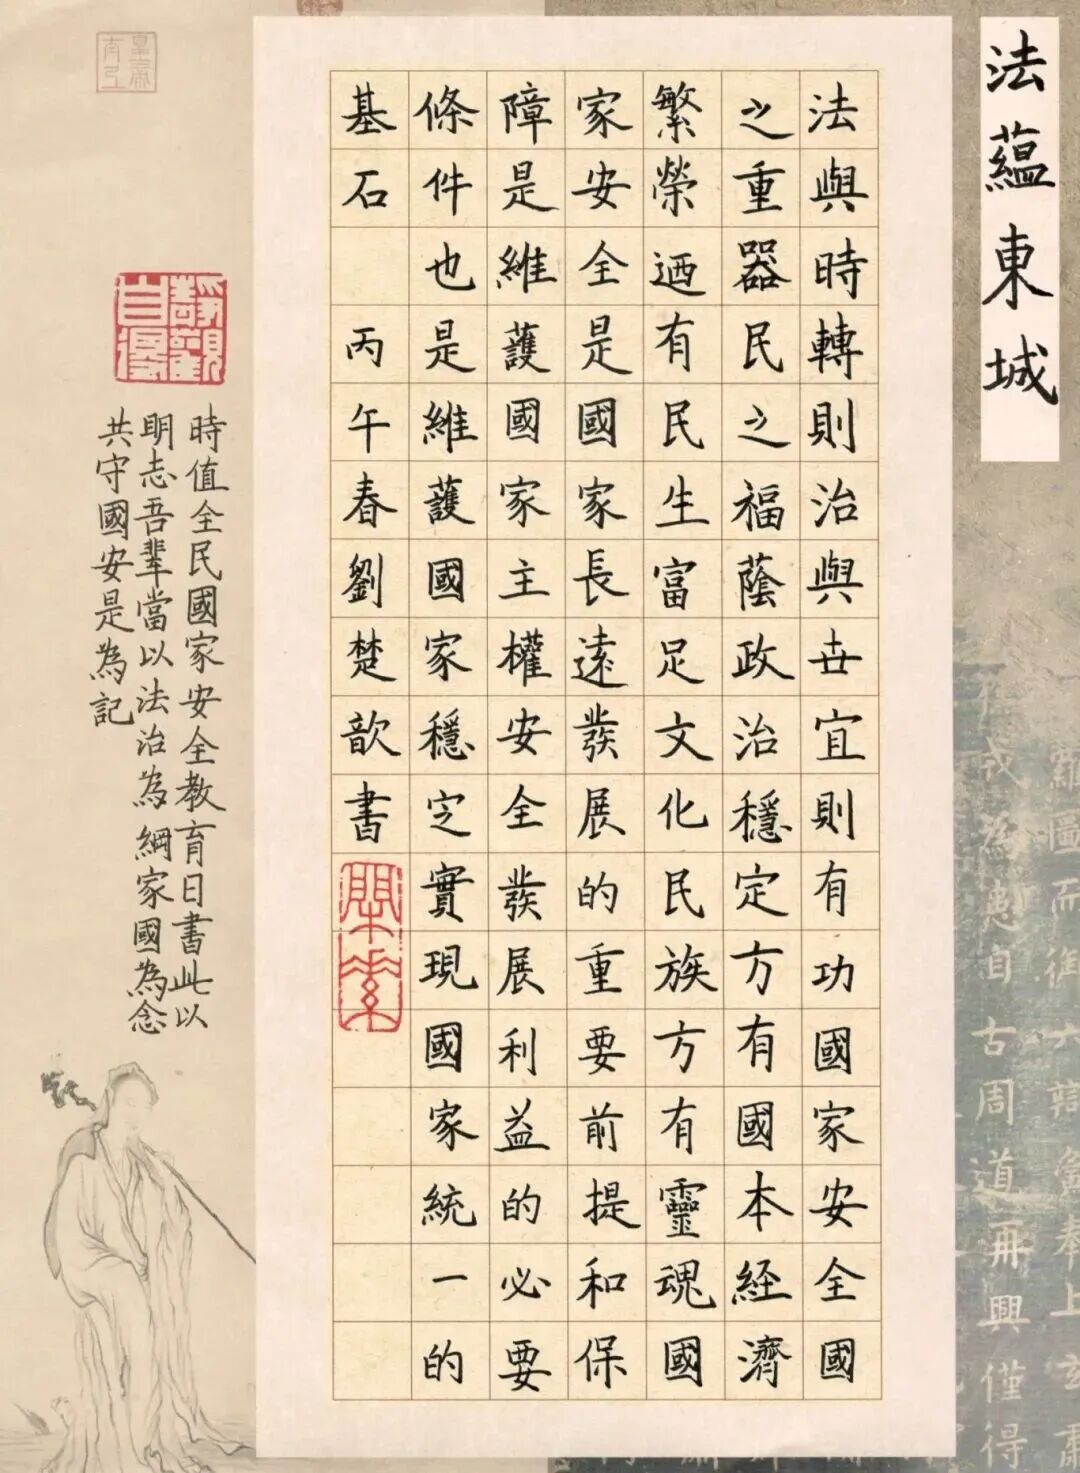 法蘊東城
法與時轉則治與世宜則有功國家安全國
之重器民之福蔭政治穩定方有國本經濟
繁榮迺有民生富足文化民族方有靈魂國
家安全是國家長遠發展的重要前提和保
障是維護國家主權安全發展利益的必要
條件也是維護國家穩定實現國家統一的
基石 丙午春劉楚歆書
靜觀自得
時值全民國家安全教育日書此以
明志吾輩當以法治為綱家國為念
共守國安是為記
古周道再興僅得